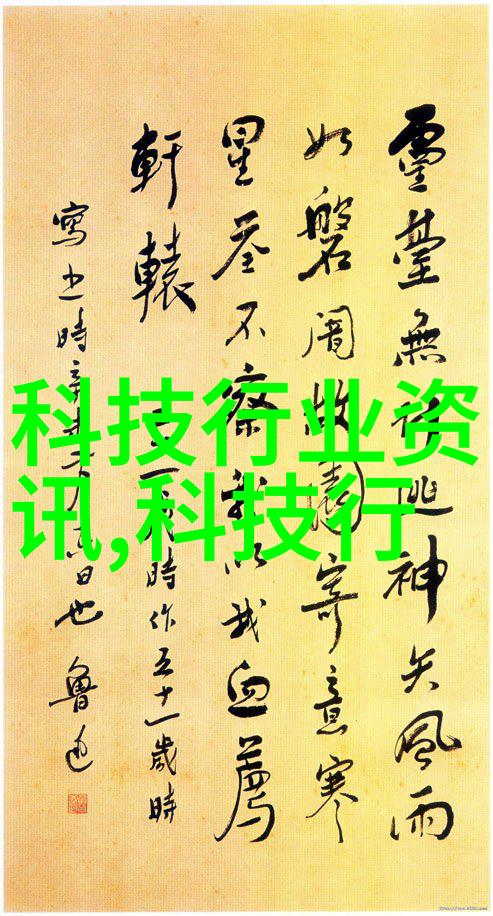 靈臺無計逃神矢風雨
如磐闇故園寄意寒
星荃不察我以我血薦
軒轅 二十一歲時作五十一歲時
寫之時辛未二月十六日也 魯迅
科技行业资
讯,科技行